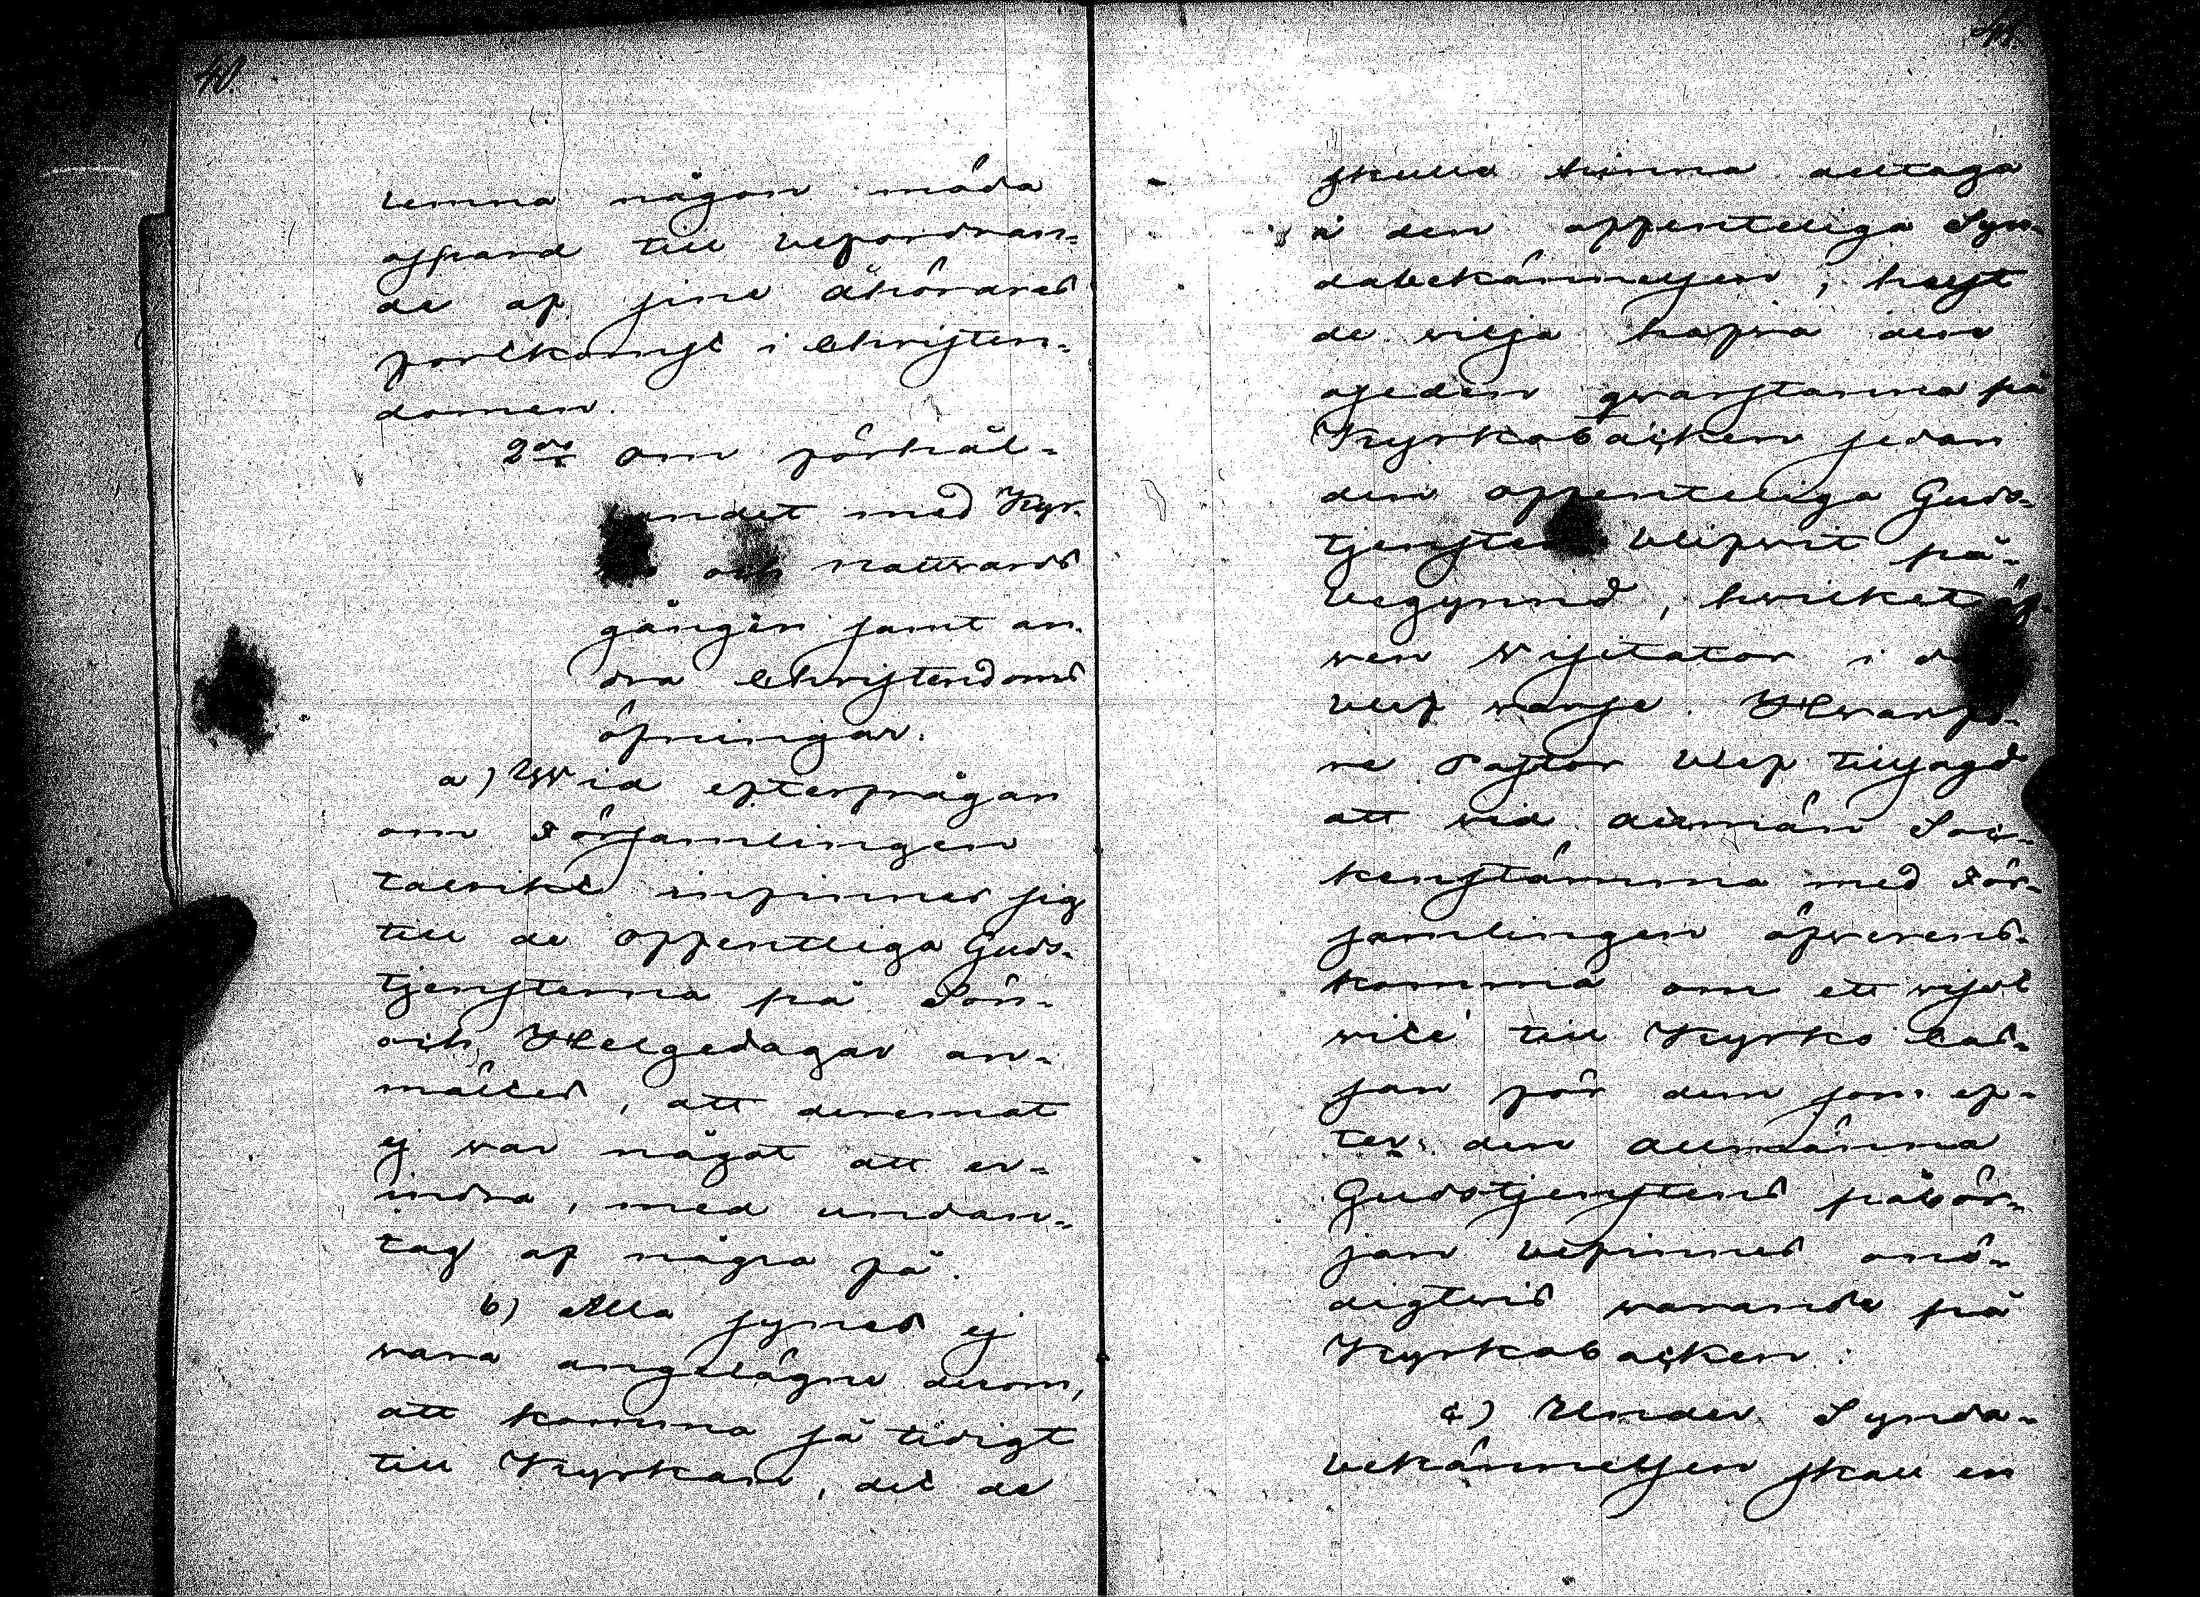 40.
lemna någon möda
ospard till befordran-
de af sine åhörares
förkofring i Christen-
domen.
2do Om förhål-
andet med Kyr-
och nattvards
gången samt an-
dra Christendoms
öfningar.
a) Wid efterfrågan
om Församlingen
talrikt infinner sig
till de offentliga Guds-
tjensterna på Sön-
och Helgedagar an-
mältes, att deremot
ej var något att er-
indra, med undan-
tag af några få.
b) Alla synes ej
vara angelägne derom,
att komma så tidigt
till Kyrkan, att de
41.
skulle hinna deltaga
i den offenteliga Syn-
dabekännelsen; helst
de vilja hafva den
oseden qvarstanna på
Kyrkobacken sedan
den offenteliga Guds-
tjensten blifvit på-
begynnd, hvilket äf-
ven Visitator i
blef varse. Hvarfö-
re Pastor blef tillsagd
att vid allmän Soc-
kenstämma med För-
samlingen öfverens-
komma om ett visst
vite till Kyrko Cas-
san för dem som ef-
ter den allmänna
Gudstjenstens påbör-
jan befinnes onö-
digtvis varande på
Kyrkobacken.
c) Under Synda-
bekännelsen skall en